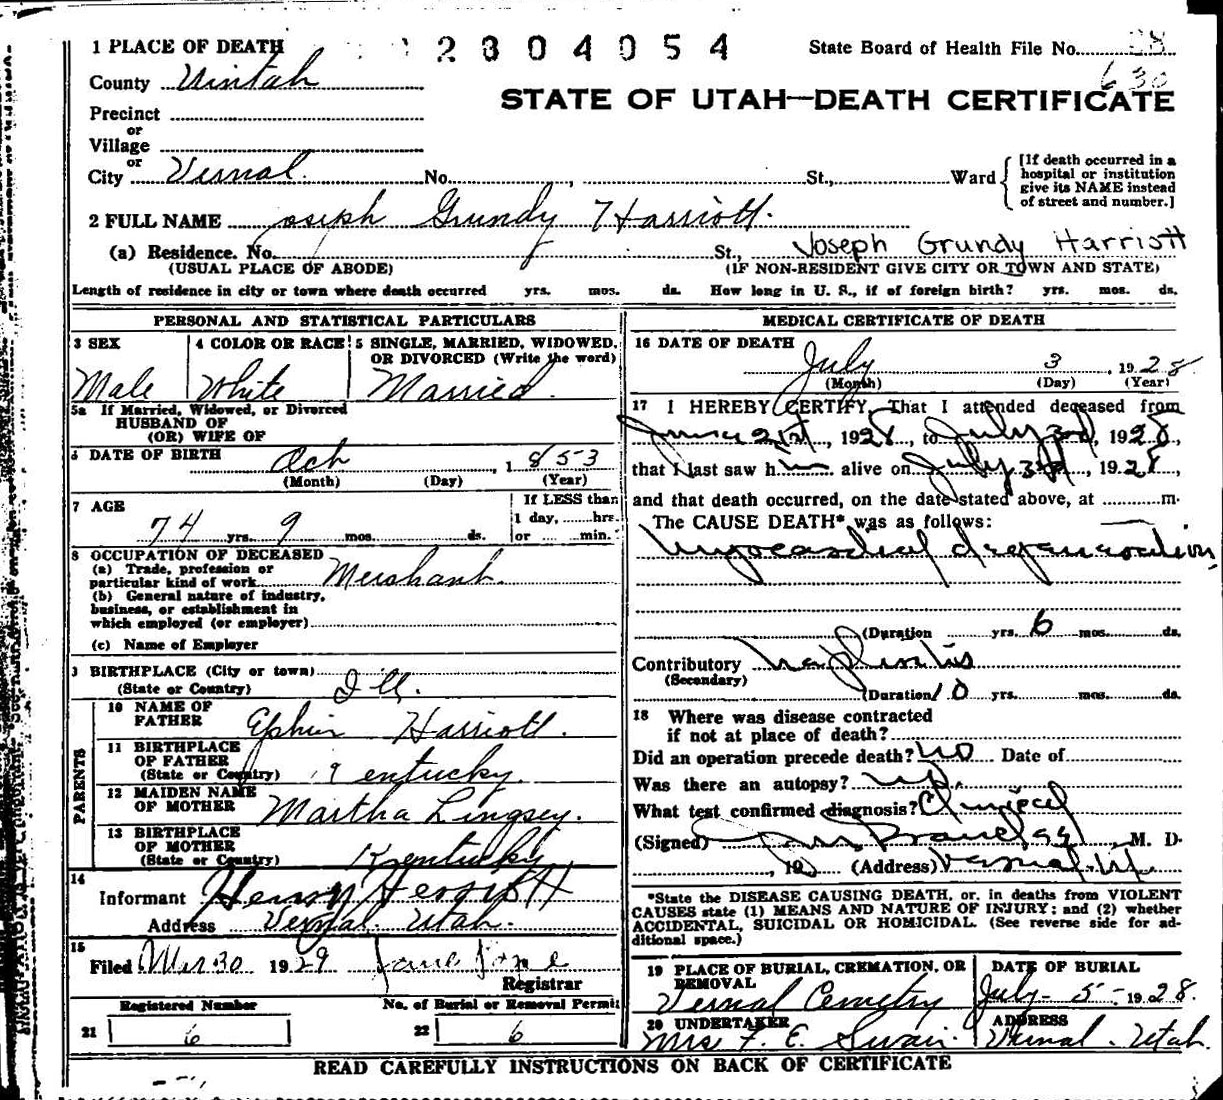 1 PLACE OF DEATH 2804054 State Board of Health File No. 28
County Uintah 630
STATE OF UTAH—DEATH CERTIFICATE
Precinct
or
Village
or
City Vernal No. , St., Ward
[If death occurred in a
hospital or institution
give its NAME instead
of street and number.]
2 FULL NAME Joseph Grundy Harriott.
(a) Residence. No. St., Joseph Grundy Harriott
(USUAL PLACE OF ABODE) (IF NON-RESIDENT GIVE CITY OR TOWN AND STATE)
Length of residence in city or town where death occurred yrs. mos. ds. How long in U. S., if of foreign birth? yrs. mos. ds.
PERSONAL AND STATISTICAL PARTICULARS
3 SEX 4 COLOR OR RACE 5 SINGLE, MARRIED, WIDOWED,
OR DIVORCED (Write the word)
Male White Married.
5a If Married, Widowed, or Divorced
HUSBAND OF
(OR) WIFE OF
6 DATE OF BIRTH 1853
(Month) (Day) (Year)
7 AGE If LESS than
1 day, hrs.
74 yrs. 9 mos. ds. or min.
8 OCCUPATION OF DECEASED
(a) Trade, profession or
particular kind of work Merchant.
(b) General nature of industry,
business, or establishment in
which employed (or employer)
(c) Name of Employer
9 BIRTHPLACE (City or town)
(State or Country) Ill.
PARENTS
10 NAME OF
FATHER Harriott.
11 BIRTHPLACE
OF FATHER
(State or Country) Kentucky.
12 MAIDEN NAME
OF MOTHER Martha Lingsey.
13 BIRTHPLACE
OF MOTHER
(State or Country) Kentucky
14
Informant Henry Harriott
Address Vernal Utah.
15
Filed Mar 30 1929 Jane Pope
Registrar
Registered Number No. of Burial or Removal Permit
21 6 22 6
MEDICAL CERTIFICATE OF DEATH
16 DATE OF DEATH
July 3, 1928
(Month) (Day) (Year)
17 I HEREBY CERTIFY, That I attended deceased from
June 21st, 1928, to July 3rd, 1928,
that I last saw him alive on July 3rd, 1928,
and that death occurred, on the date stated above, at m.
The CAUSE DEATH* was as follows:
Myocardial degeneration
(Duration yrs. 6 mos. ds.
Contributory Nephritis
(Secondary)
(Duration 10 yrs. mos. ds.
18 Where was disease contracted
if not at place of death?
Did an operation precede death? no Date of
Was there an autopsy? no.
What test confirmed diagnosis? Clinical
(Signed) M. D.
, 19 (Address) Vernal, Ut.
*State the DISEASE CAUSING DEATH, or, in deaths from VIOLENT
CAUSES state (1) MEANS AND NATURE OF INJURY; and (2) whether
ACCIDENTAL, SUICIDAL OR HOMICIDAL. (See reverse side for ad-
ditional space.)
19 PLACE OF BURIAL, CREMATION, OR DATE OF BURIAL
REMOVAL
Vernal Cemetry July - 5 - 1928.
20 UNDERTAKER ADDRESS
Mrs F. E. Swain. Vernal. Utah.
READ CAREFULLY INSTRUCTIONS ON BACK OF CERTIFICATE